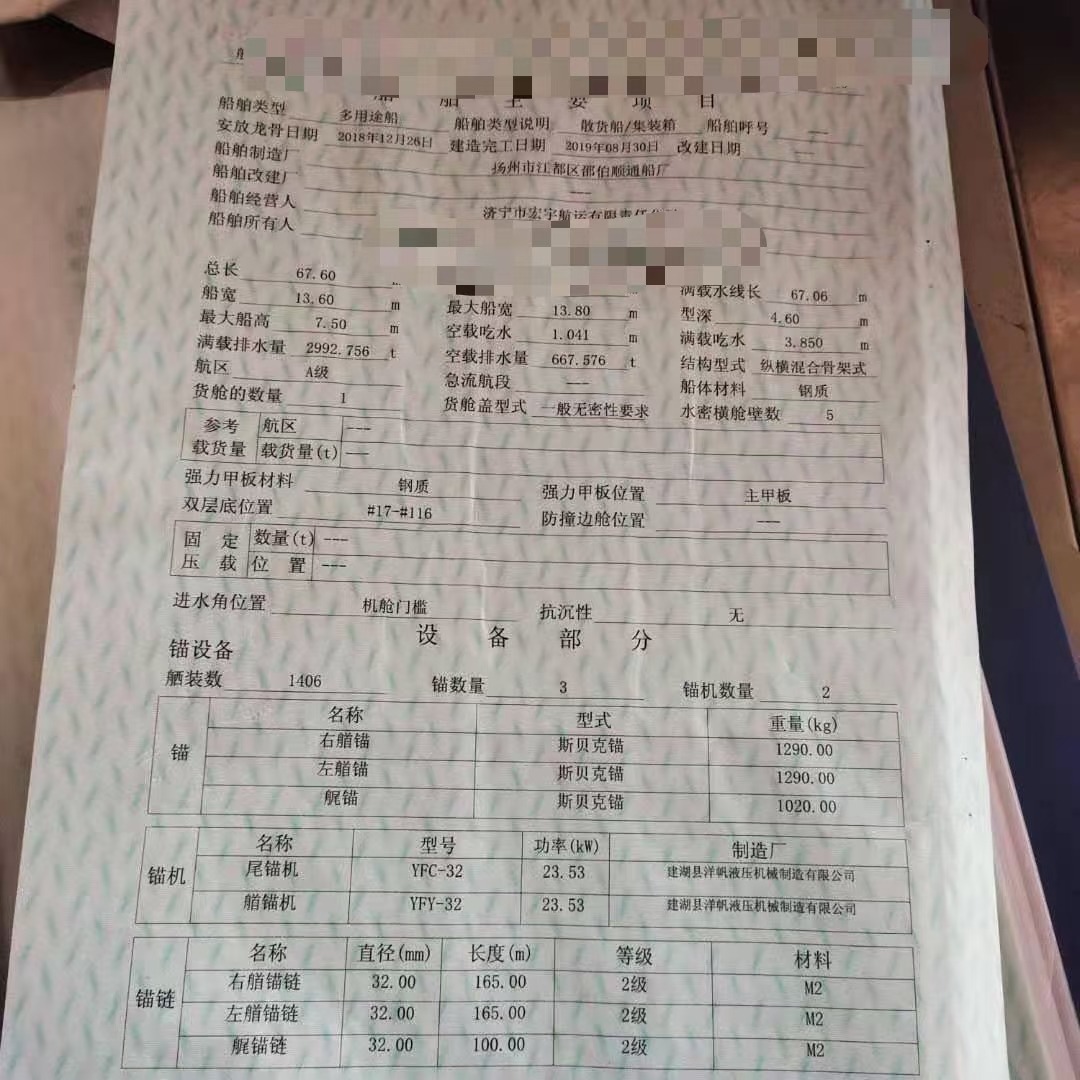 船舶主要项目
船舶类型 多用途船 船舶类型说明 散货船/集装箱 船舶呼号 ---
安放龙骨日期 2018年12月26日 建造完工日期 2019年08月30日 改建日期 ---
船舶制造厂 扬州市江都区邵伯顺通船厂
船舶改建厂 ---
船舶经营人 济宁市宏宇航运有限责任公司
船舶所有人
总长 67.60 m 满载水线长 67.06 m
船宽 13.60 m 最大船宽 13.80 m 型深 4.60 m
最大船高 7.50 m 空载吃水 1.041 m 满载吃水 3.850 m
满载排水量 2992.756 t 空载排水量 667.576 t 结构型式 纵横混合骨架式
航区 A级 急流航段 --- 船体材料 钢质
货舱的数量 1 货舱盖型式 一般无密性要求 水密横舱壁数 5
参考 航区 ---
载货量 载货量(t) ---
强力甲板材料 钢质 强力甲板位置 主甲板
双层底位置 #17-#116 防撞边舱位置 ---
固定 数量(t) ---
压载 位置 ---
进水角位置 机舱门槛 抗沉性 无
设备部分
锚设备
舾装数 1406 锚数量 3 锚机数量 2
锚 名称 型式 重量(kg)
右艏锚 斯贝克锚 1290.00
左艏锚 斯贝克锚 1290.00
艉锚 斯贝克锚 1020.00
锚机 名称 型号 功率(kW) 制造厂
尾锚机 YFC-32 23.53 建湖县洋帆液压机械制造有限公司
艏锚机 YFY-32 23.53 建湖县洋帆液压机械制造有限公司
锚链 名称 直径(mm) 长度(m) 等级 材料
右艏锚链 32.00 165.00 2级 M2
左艏锚链 32.00 165.00 2级 M2
艉锚链 32.00 100.00 2级 M2